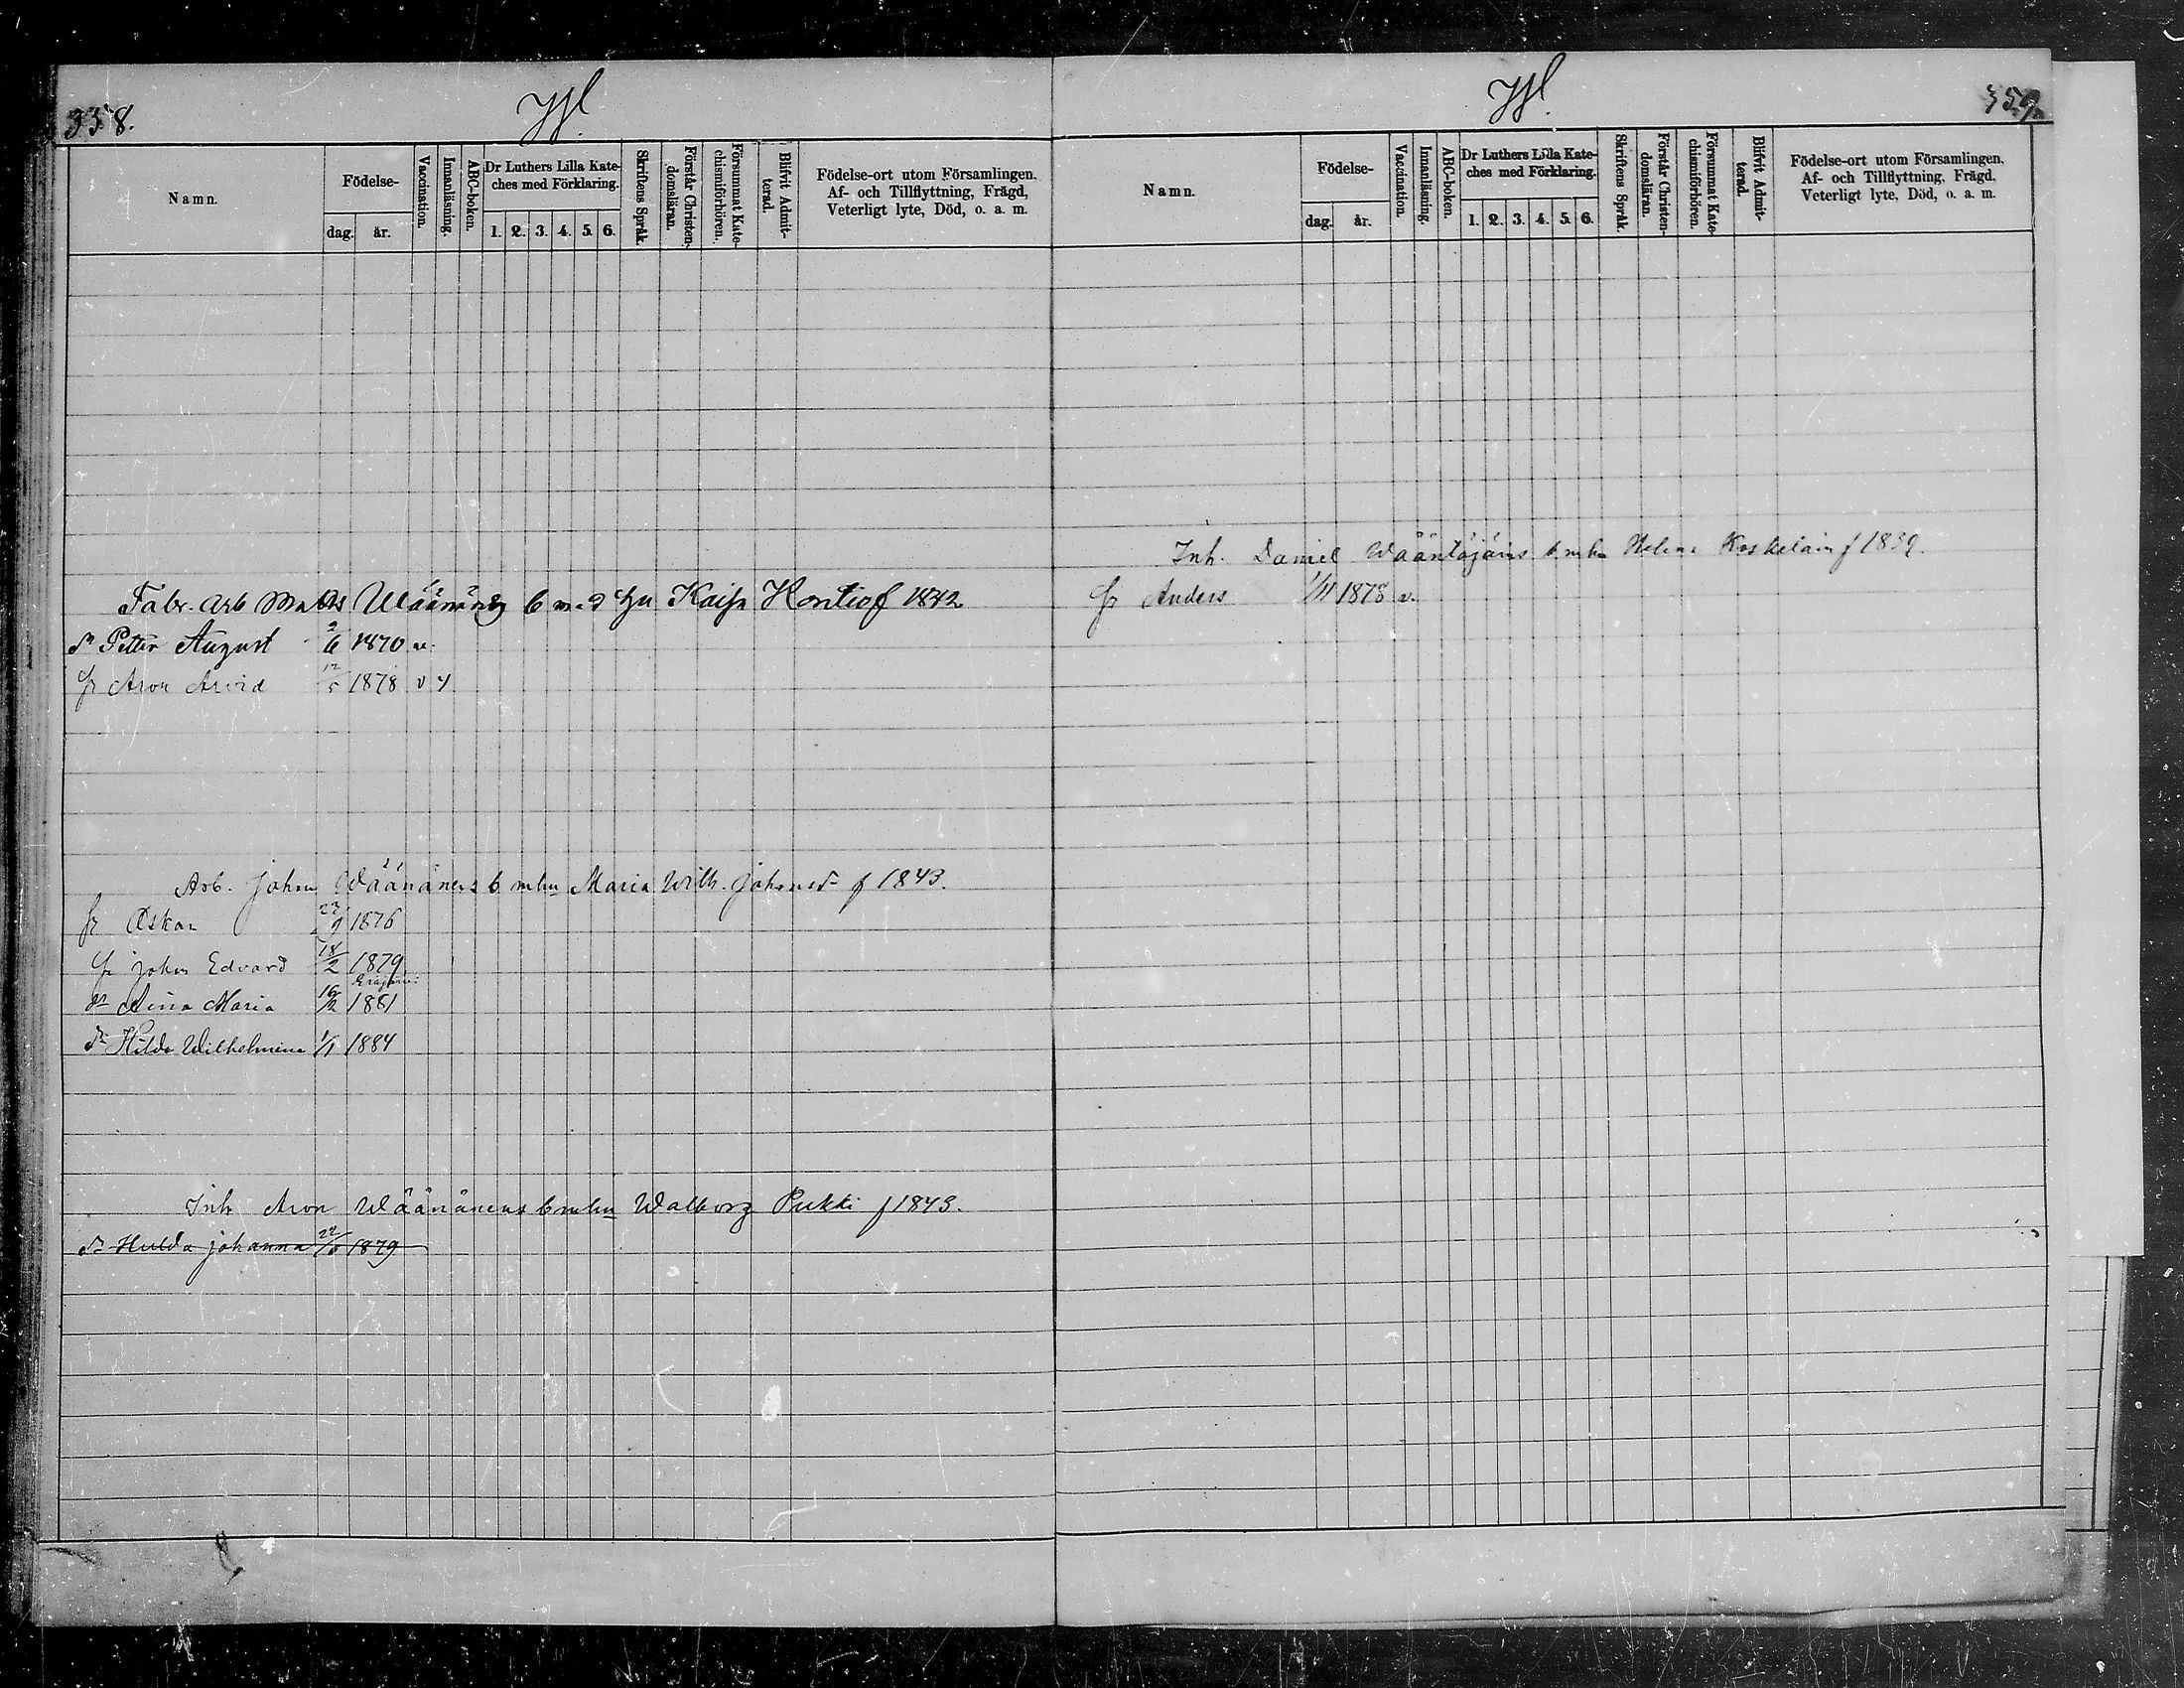 358.
Namn.
Födelse-
dag.
år.
Vaccination.
Innanläsning.
ABC-boken.
Dr Luthers Lilla Kate-
ches med Förklaring.
1. 2. 3. 4. 5. 6.
Skriftens Språk.
Förstår Christen-
domsläran.
Försummat Kate-
chismiförhören.
Blifvit Admit-
terad.
Födelse-ort utom Församlingen.
Af- och Tillflyttning, Frägd,
Veterligt lyte, Död, o. a. m.
Fabr. arb Matts Väänänen b m. d hu Kaisa Hontio f 1842
dr Petter August 2/6 1870 v.
fr Aron Arvid 12/5 1878 v y
Arb. Johan Wäänänens b. mhu Maria Wilh. Johansd f 1843.
fr Oskar 23/9 1876
fr Johan Edvard 18/2 1879
Eräjärvi
dr Aina Maria 16/2 1881
dr Hilda Wilhelmina 1/1 1884
Inh Aron Wäänänens b mhu Walborg Pukki f 1843.
dr Hulda Johanna 22/5 1879
359.
Namn.
Födelse-
dag.
år.
Vaccination.
Innanläsning.
ABC-boken.
Dr Luthers Lilla Kate-
ches med Förklaring.
1. 2. 3. 4. 5. 6.
Skriftens Språk.
Förstår Christen-
domsläran.
Försummat Kate-
chismiförhören.
Blifvit Admit-
terad.
Födelse-ort utom Församlingen.
Af- och Tillflyttning, Frägd,
Veterligt lyte, Död, o. a. m.
Inh. Daniel Wääntäjäns b. mhu Helena Koskelain f 1839.
fr Anders 1/11 1878 v.